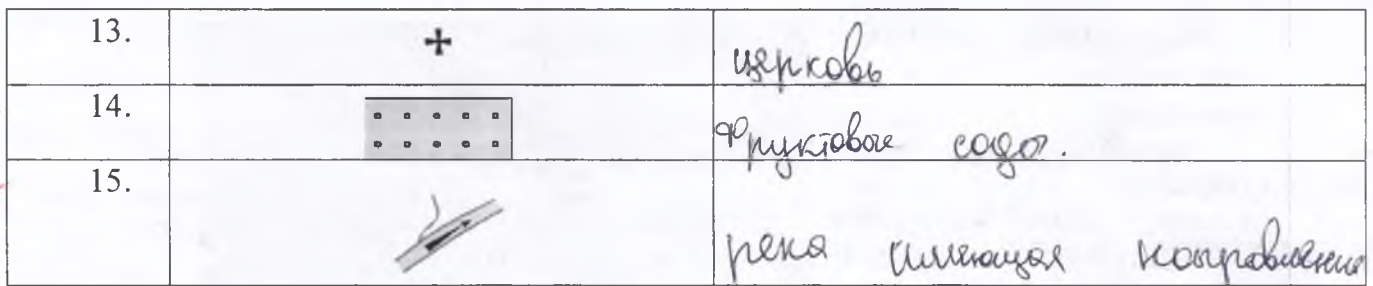 13. церковь
14. Фруктовые сады.
15. река имеющая направление